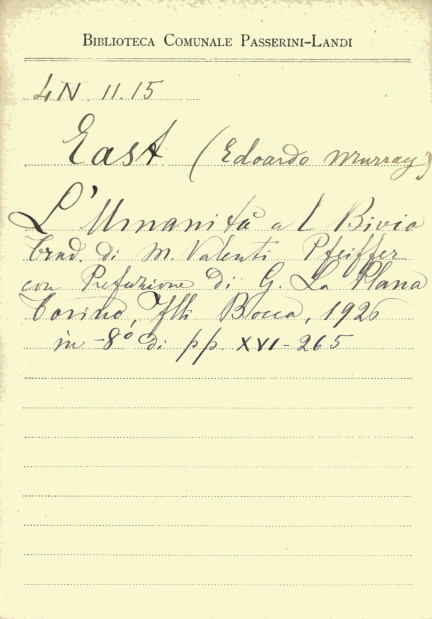 BIBLIOTECA COMUNALE PASSERINI-LANDI
4N. 11.15
East (Edoardo Murray)
L'Umanità al Bivio
Trad. di M. Valenti Pfeiffer
con Prefazione di G. La Plana
Torino, Flli Bocca, 1926
in -8° di pp XVI-265